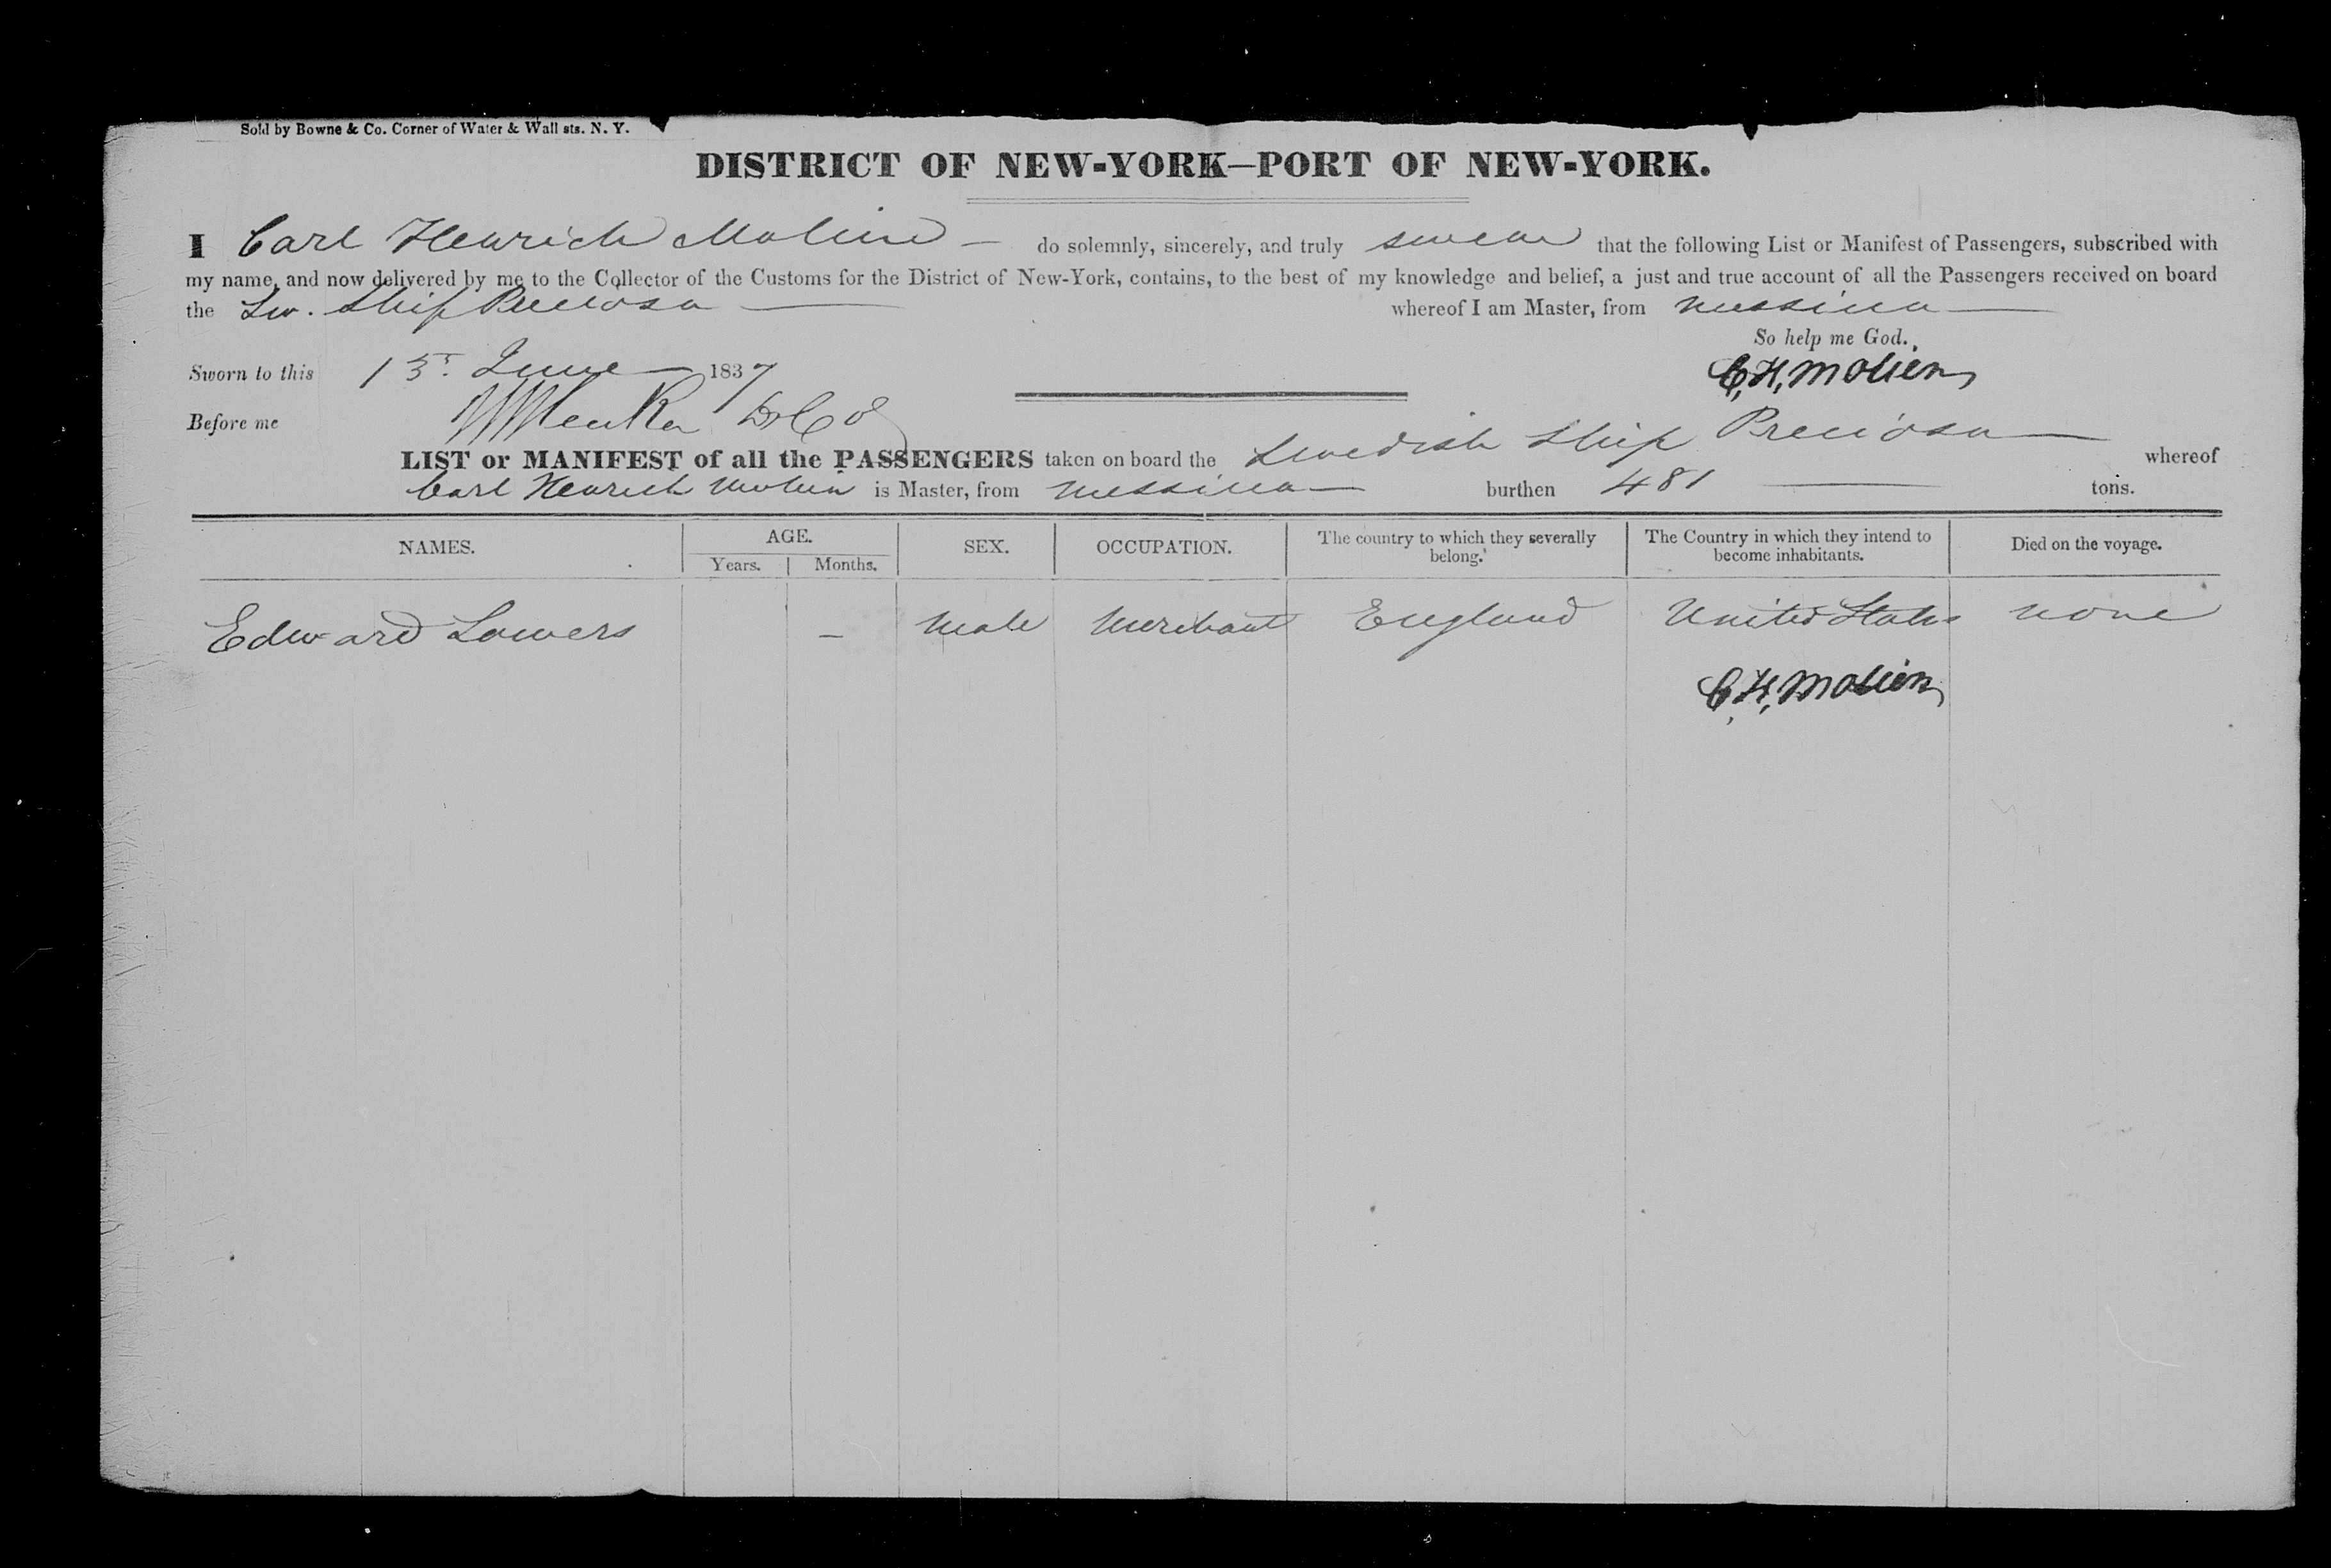 Sold by Bowne & Co. Corner of Water & Wall sts. N. Y.
DISTRICT OF NEW-YORK—PORT OF NEW-YORK.
I Carl Henrich Molien — do solemnly, sincerely, and truly swear that the following List or Manifest of Passengers, subscribed with
my name, and now delivered by me to the Collector of the Customs for the District of New-York, contains, to the best of my knowledge and belief, a just and true account of all the Passengers received on board
the Sw. Ship Preciosa — whereof I am Master, from Messina —
So help me God.
Sworn to this 15. June 1837
C, H, Molien
Before me
LIST or MANIFEST of all the PASSENGERS taken on board the Swedish Ship Preciosa — whereof
Carl Henrich Molien is Master, from Messina — burthen 481 — tons.
NAMES. AGE. SEX. OCCUPATION. The country to which they severally belong. The Country in which they intend to become inhabitants. Died on the voyage.
Years. Months.
Edward Lowers — Male Merchant England United States none
C, H, Molien